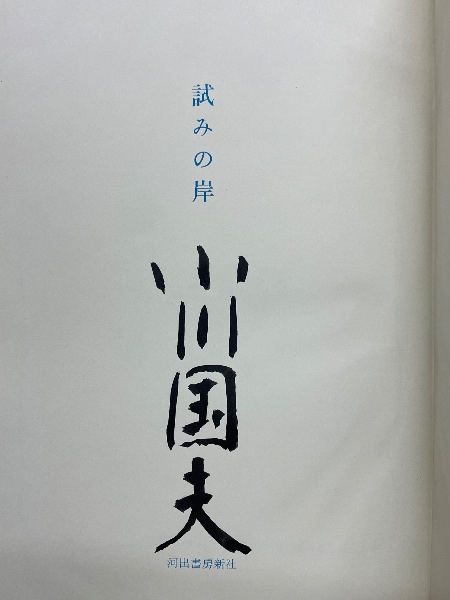 試みの岸
小川国夫
河出書房新社